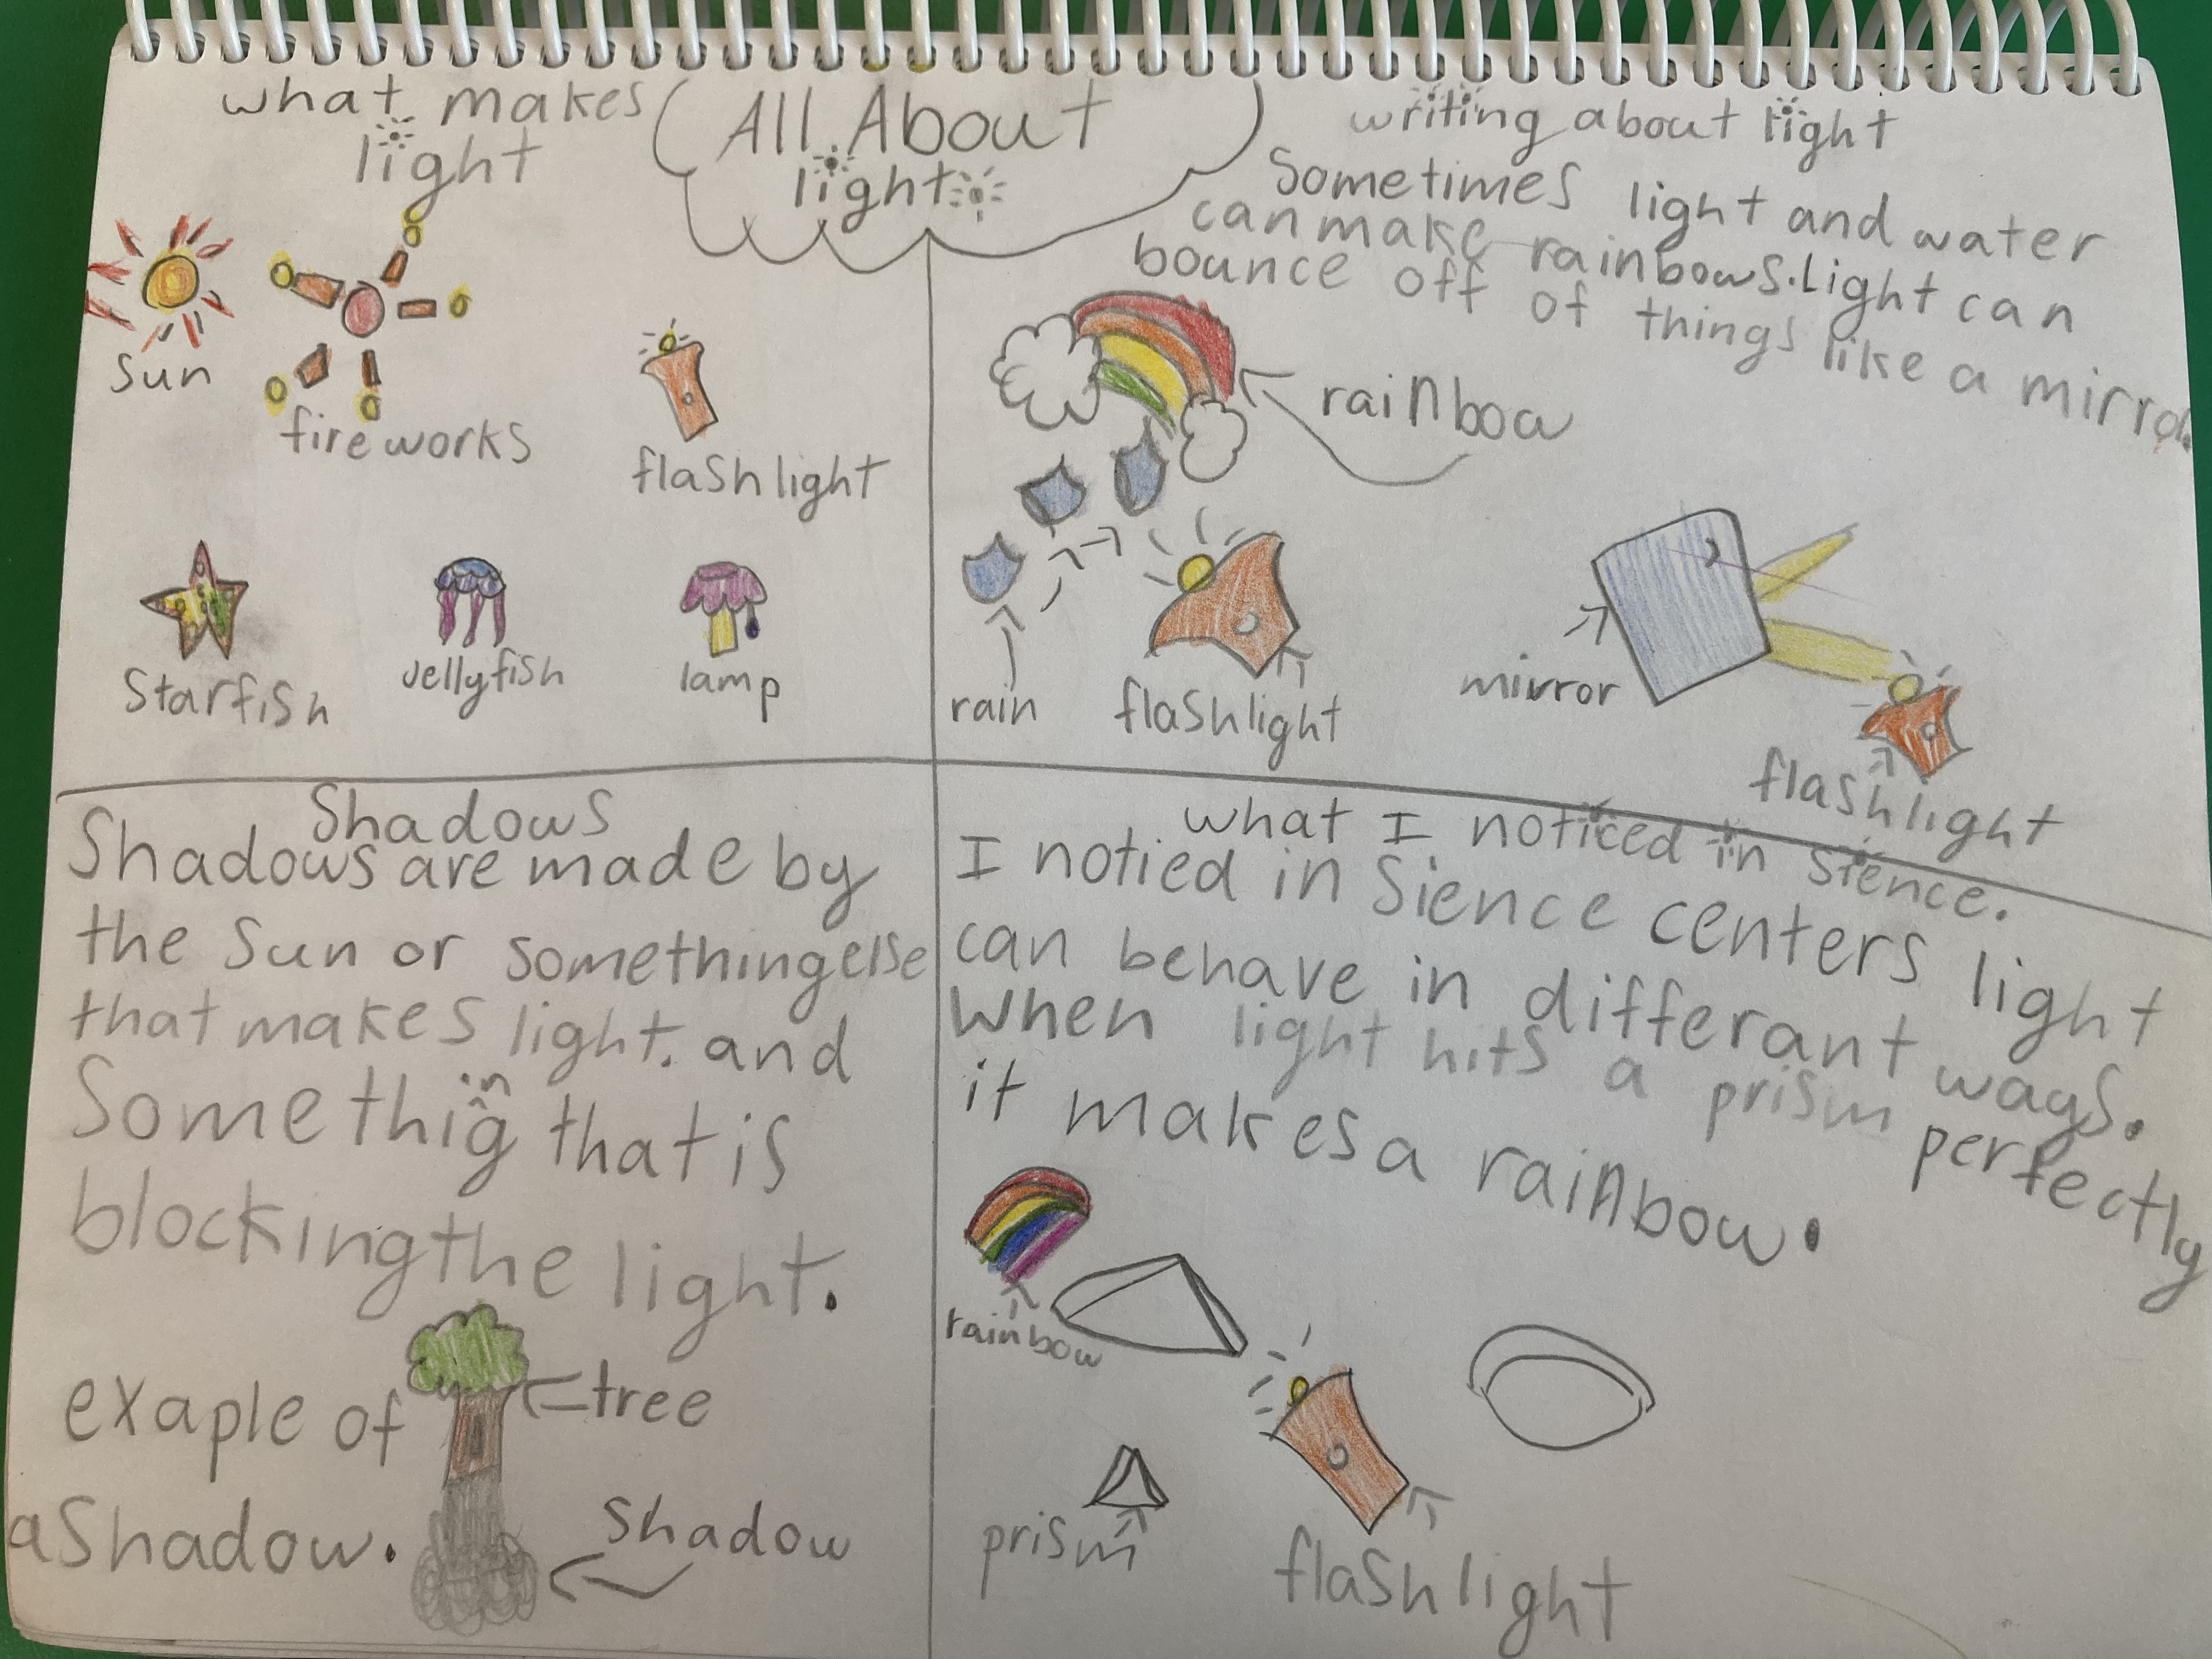 All About
light
what makes
light
Sun
fireworks
flashlight
Starfish
Jellyfish
lamp
writing about light
Sometimes light and water
can make rainbows. Light can
bounce off of things like a mirror.
rainbow
rain
flashlight
mirror
flashlight
Shadows
Shadows are made by
the Sun or something else
that makes light. and
Somethig in that is
blocking the light.
exaple of
a Shadow.
tree
Shadow
what I noticed in sience.
I notied in Sience centers light
can behave in differant ways.
When light hits a prism perfectly
it makes a rainbow.
rainbow
prism
flashlight